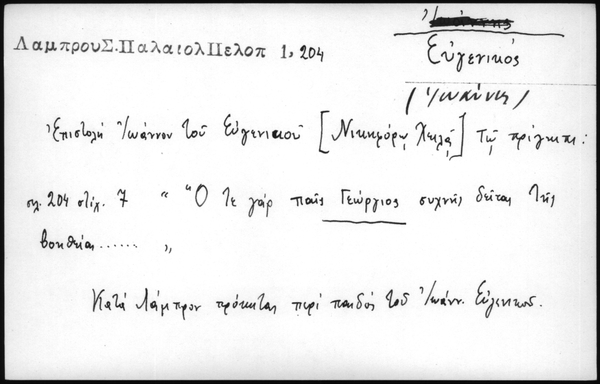 ΛαμπρουΣ.ΠαλαιολΠελοπ 1, 204
Εὐγενικός
(Ἰωάννης)
Ἐπιστολή Ἰωάννου τοῦ Εὐγενικοῦ [Νικηφόρῳ Χειλᾷ] τῷ πρίγκιπι:
σελ. 204 στίχ. 7 " "Ὁ τε γάρ παῖς Γεώργιος συχνῆς δεῖται τῆς
βοηθείας...... "
Κατά Λάμπρον πρόκειται περί παιδός τοῦ Ἰωάνν. Εὐγενικοῦ.